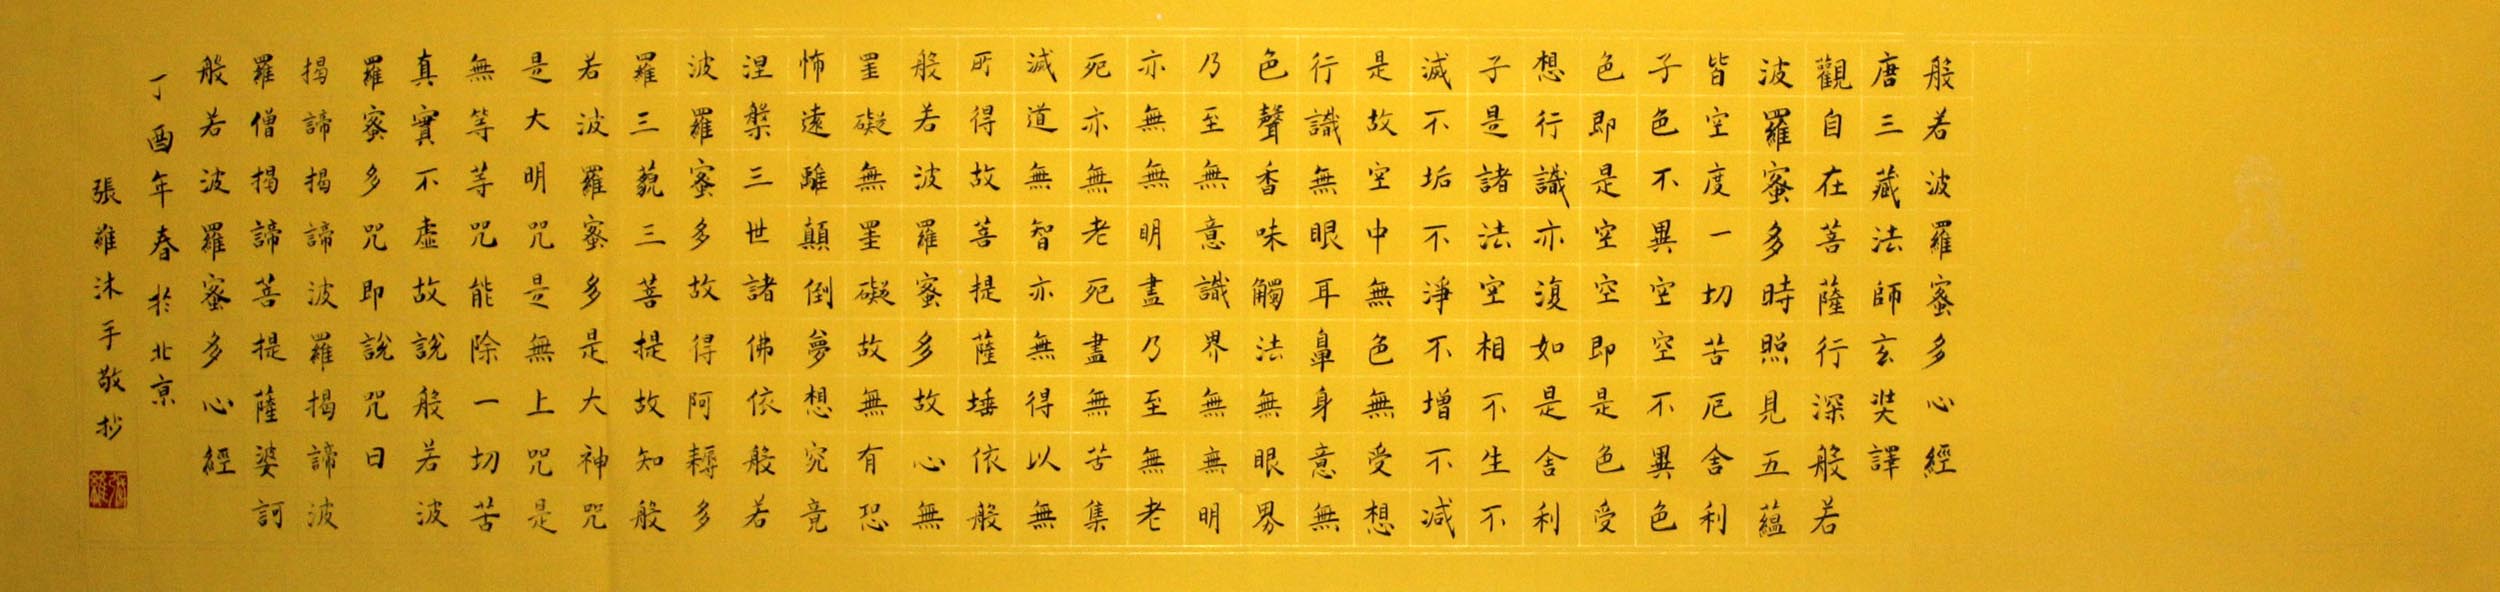 般若波羅蜜多心經
唐三藏法師玄奘譯
觀自在菩薩行深般若
波羅蜜多時照見五蘊
皆空度一切苦厄舍利
子色不異空空不異色
色即是空空即是色受
想行識亦復如是舍利
子是諸法空相不生不
滅不垢不淨不增不減
是故空中無色無受想
行識無眼耳鼻身意無
色聲香味觸法無眼界
乃至無意識界無無明
亦無無明盡乃至無老
死亦無老死盡無苦集
滅道無智亦無得以無
所得故菩提薩埵依般
般若波羅蜜多故心無
罣礙無罣礙故無有恐
怖遠離顛倒夢想究竟
涅槃三世諸佛依般若
波羅蜜多故得阿耨多
羅三藐三菩提故知般
若波羅蜜多是大神咒
是大明咒是無上咒是
無等等咒能除一切苦
真實不虛故說般若波
羅蜜多咒即說咒曰
揭諦揭諦波羅揭諦波
羅僧揭諦菩提薩婆訶
般若波羅蜜多心經
丁酉年春於北京
張雍沐手敬抄